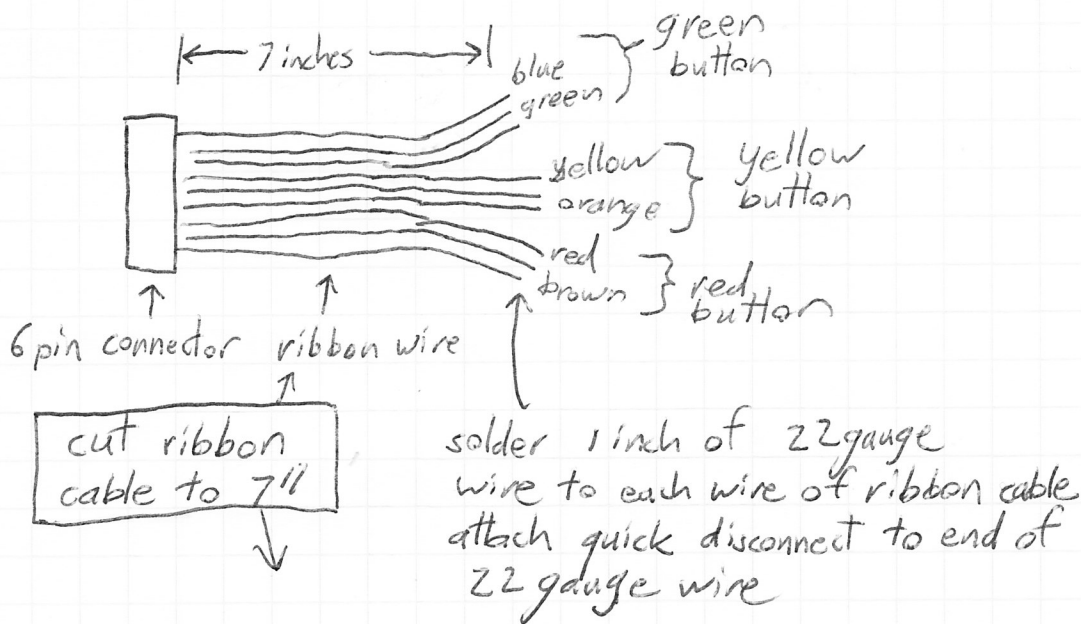 7 inches
blue
green
green
button
yellow
orange
yellow
button
red
brown
red
button
6 pin connector
ribbon wire
cut ribbon
cable to 7"
solder 1 inch of 22 gauge
wire to each wire of ribbon cable
attach quick disconnect to end of
22 gauge wire